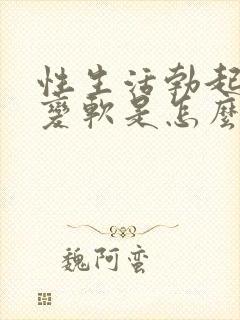 性生活勃起
变軟是怎麼
魏阿蛮